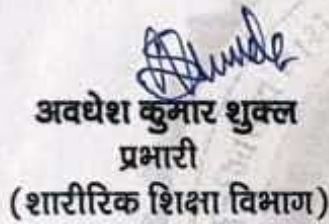 अवधेश कुमार शुक्ल
प्रभारी
(शारीरिक शिक्षा विभाग)